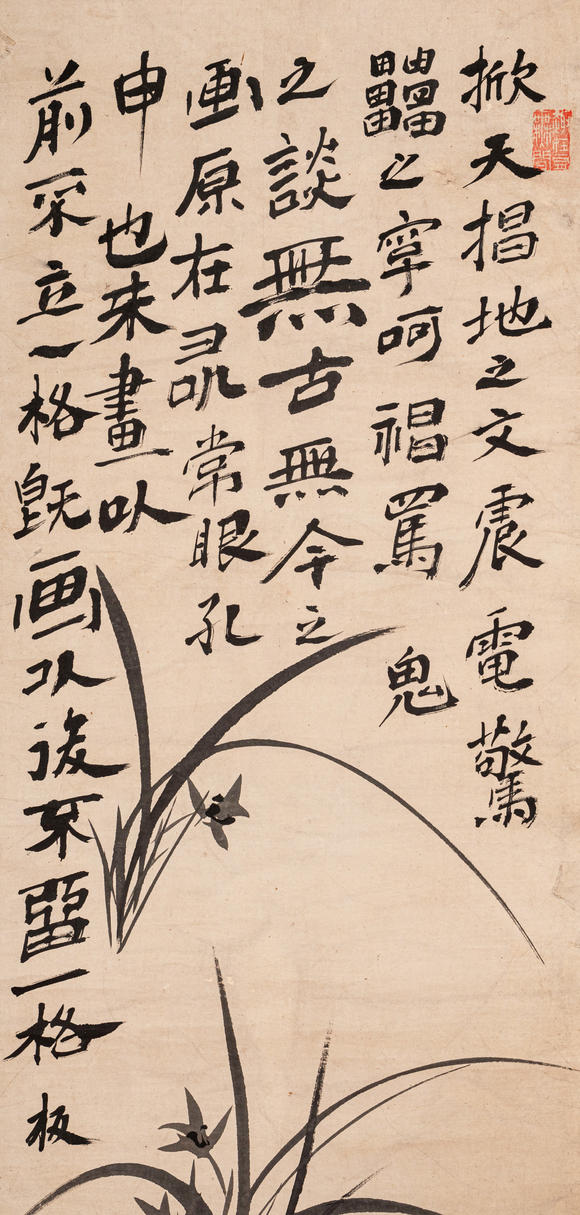 掀天揭地之文震電驚
雷之字呵神罵鬼
之談無古無今之
画原在尋常眼孔
申也未畫以
前不立一格既画以後不留一格板